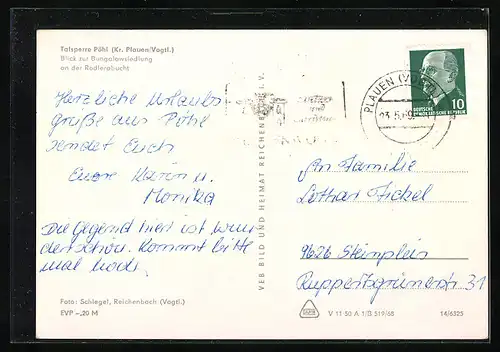 Talsperre Pöhl (Kr. Plauen/Vogtl.)
Blick zur Bungalowsiedlung
an der Rodlerabucht
Herzliche Urlaubs
grüße aus Pöhl
sendet Euch
Eure Karin u.
Monika
Die Gegend hier ist wun
derschön. Kommt bitte
mal hoch.
Foto: Schlegel, Reichenbach (Vogtl.)
EVP –,20 M
VEB BILD UND HEIMAT REICHENBACH i. V.
PLAUEN (VOGTL)
DEUTSCHE
DEMOKRATISCHE REPUBLIK
10
An Familie
Lothar Fickel
9626 Steinpleis
Ruppertsgrünerstr 31
V 11 50 A 1/B 519/68
14/6325